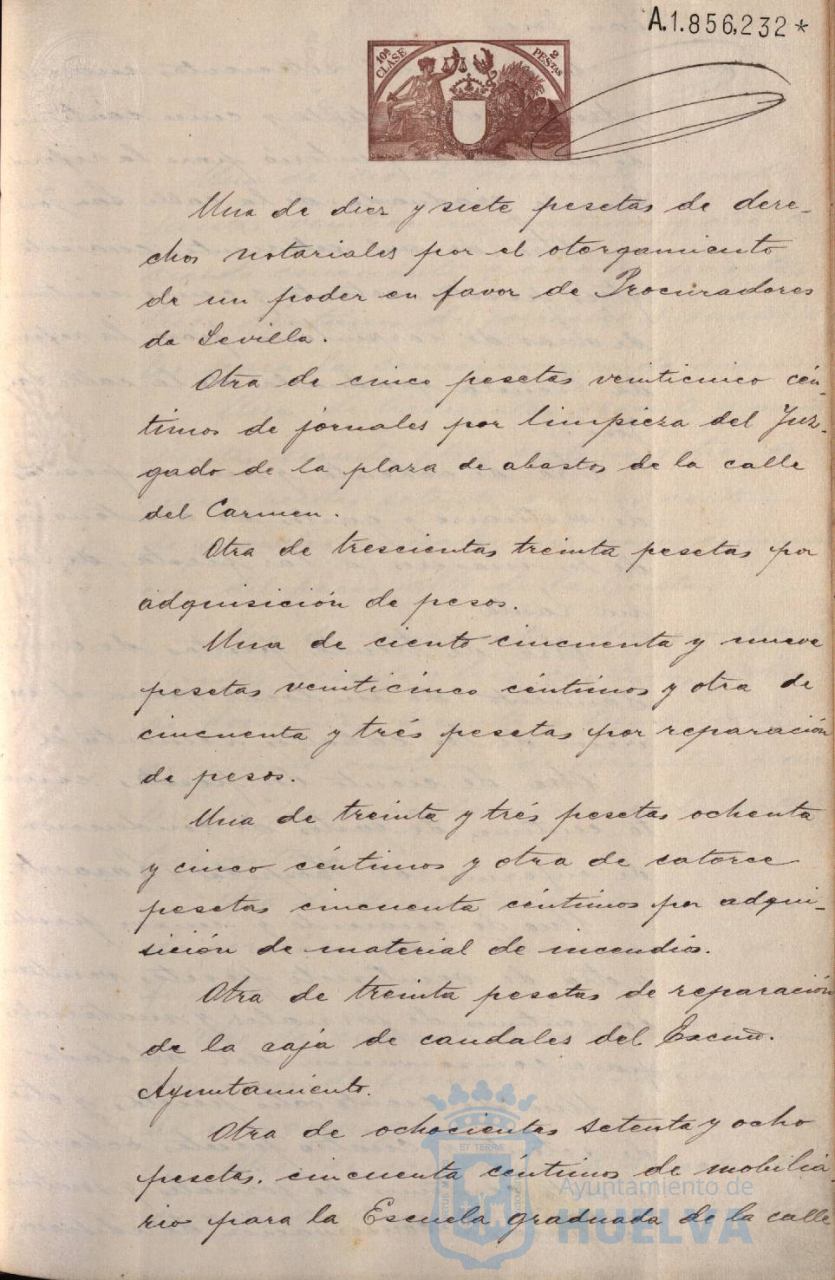 A.1.856,232 *
10ª CLASE
2 PESETAS
Una de diez y siete pesetas de dere-
chos notariales por el otorgamiento
de un poder en favor de Procuradores
de Sevilla.
Otra de cinco pesetas veinticinco cén-
timos de jornales por limpieza del Juz-
gado de la plaza de abastos de la calle
del Carmen.
Otra de trescientas treinta pesetas por
adquisición de pesos.
Una de ciento cincuenta y nueve
pesetas veinticinco céntimos y otra de
cincuenta y trés pesetas por reparación
de pesos.
Una de treinta y trés pesetas ochenta
y cinco céntimos y otra de catorce
pesetas cincuenta céntimos por adqui-
sición de material de incendios.
Otra de treinta pesetas de reparación
de la caja de caudales del Excmo.
Ayuntamiento.
Otra de ochocientas setenta y ocho
pesetas cincuenta céntimos de mobilia-
rio para la Escuela graduada de la calle
Ayuntamiento de
HUELVA